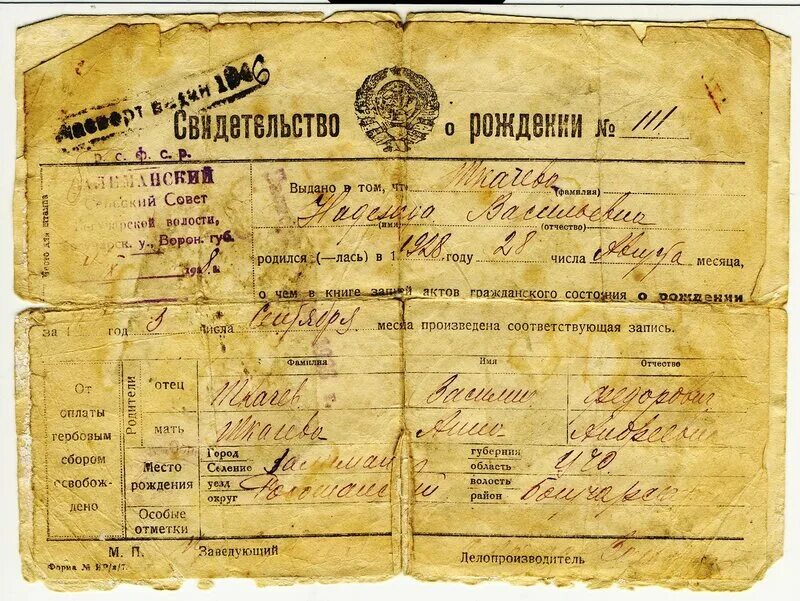 Паспорт выдан 1946
Свидетельство о рождении № 111
Р. С. Ф. С. Р.
ГАЛИМАНСКИЙ
Сельский Совет
волости,
у., Ворон. губ.
1928 г.
Место для штампа
Выдано в том, что Ткачева
(фамилия)
Надежда Васильевна
(имя) (отчество)
родился (—лась) в 1928 году 28 числа Августа месяца,
о чем в книге записей актов гражданского состояния о рождении
за 1 год 3 числа Сентября месяца произведена соответствующая запись.
Фамилия Имя Отчество
От оплаты гербовым сбором освобождено
Родители
отец Ткачев Василий Федорович
мать Ткачева Анна Андреевна
Место рождения
Город
Селение губерния
область ЦЧО
уезд
округ волость
район
Особые отметки
М. П. Заведующий Делопроизводитель
Форма №